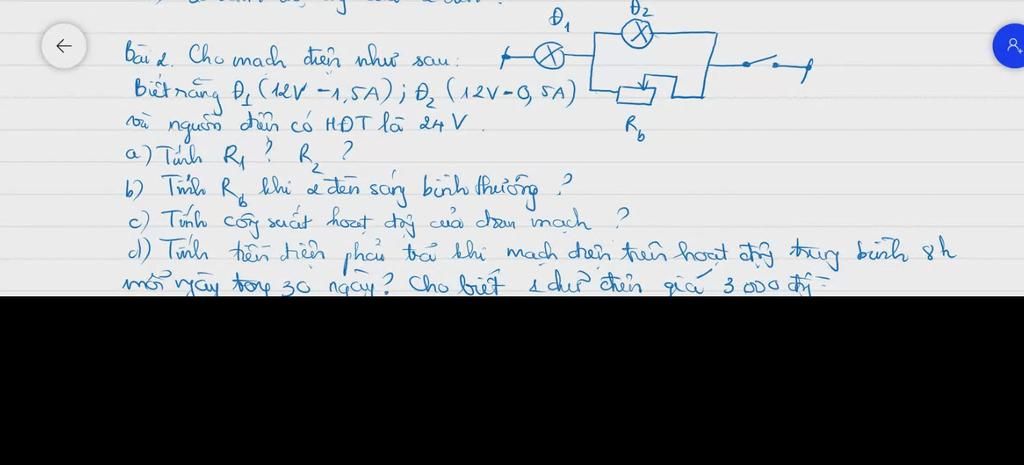 Đ₁
Đ₂
Bài 2. Cho mạch điện như sau:
Biết rằng Đ₁ (12V - 1,5A); Đ₂ (12V - 0,5A)
và nguồn điện có HĐT là 24V.
R_b
a) Tính R₁? R₂?
b) Tính R_b khi 2 đèn sáng bình thường?
c) Tính công suất hoạt động của đoạn mạch?
d) Tính tiền điện phải trả khi mạch điện trên hoạt động trung bình 8h
mỗi ngày trong 30 ngày? Cho biết 1 điện giá 3000